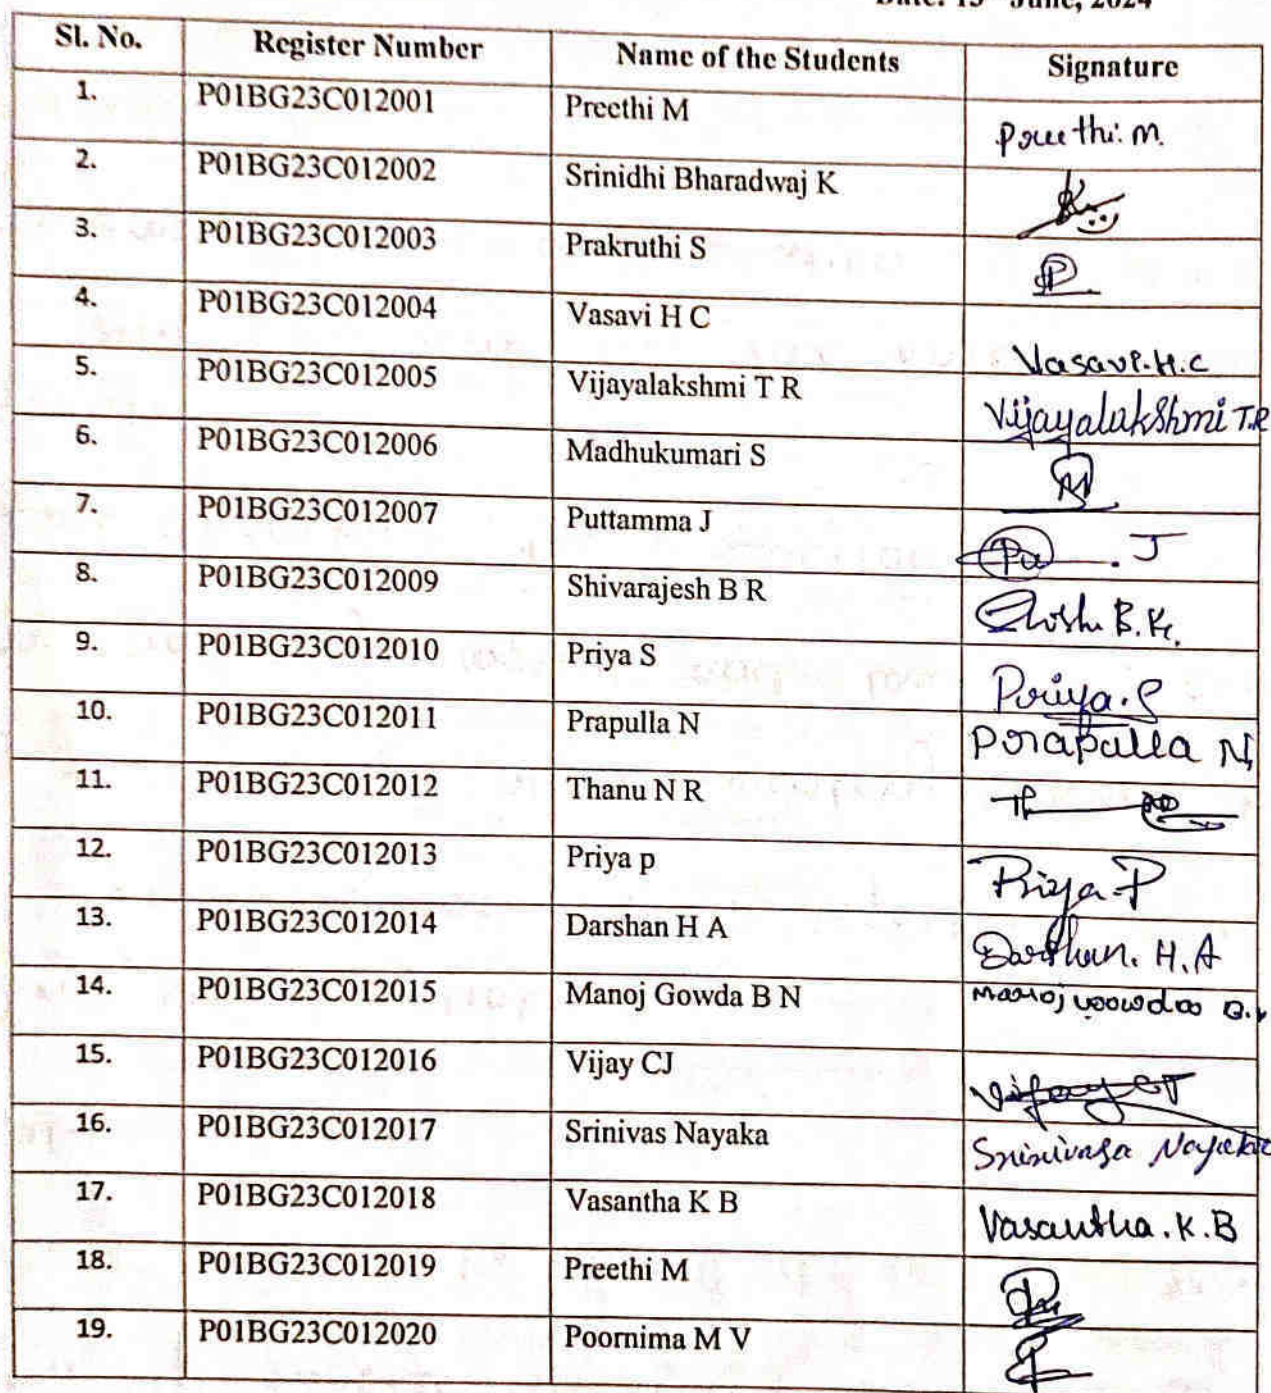 Date: 13 June, 2024
Sl. No. Register Number Name of the Students Signature
1. P01BG23C012001 Preethi M Preethi. M.
2. P01BG23C012002 Srinidhi Bharadwaj K
3. P01BG23C012003 Prakruthi S P
4. P01BG23C012004 Vasavi H C Vasavi.H.C
5. P01BG23C012005 Vijayalakshmi T R Vijayalakshmi T.R
6. P01BG23C012006 Madhukumari S M
7. P01BG23C012007 Puttamma J Pu. J
8. P01BG23C012009 Shivarajesh B R
9. P01BG23C012010 Priya S Priya.S
10. P01BG23C012011 Prapulla N Prapulla N
11. P01BG23C012012 Thanu N R
12. P01BG23C012013 Priya p Priya.P
13. P01BG23C012014 Darshan H A Darshan. H.A
14. P01BG23C012015 Manoj Gowda B N Manoj Gowda B.N
15. P01BG23C012016 Vijay CJ Vijay CJ
16. P01BG23C012017 Srinivas Nayaka Srinivasa Nayaka
17. P01BG23C012018 Vasantha K B Vasantha.K.B
18. P01BG23C012019 Preethi M
19. P01BG23C012020 Poornima M V